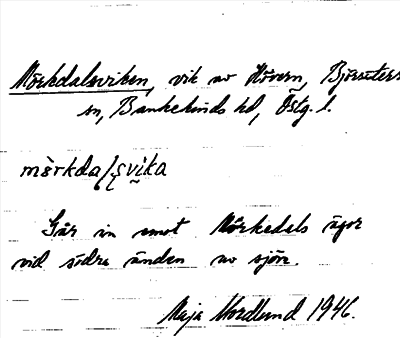 Mörkdalsviken, vik av Hövern, Björsäters
sn, Bankekinds hd, Östg. l.
mö̀rkdalsvika
Går in emot Mörkedals ägor
vid södra änden av sjön.
Maja Nordlund 1946.